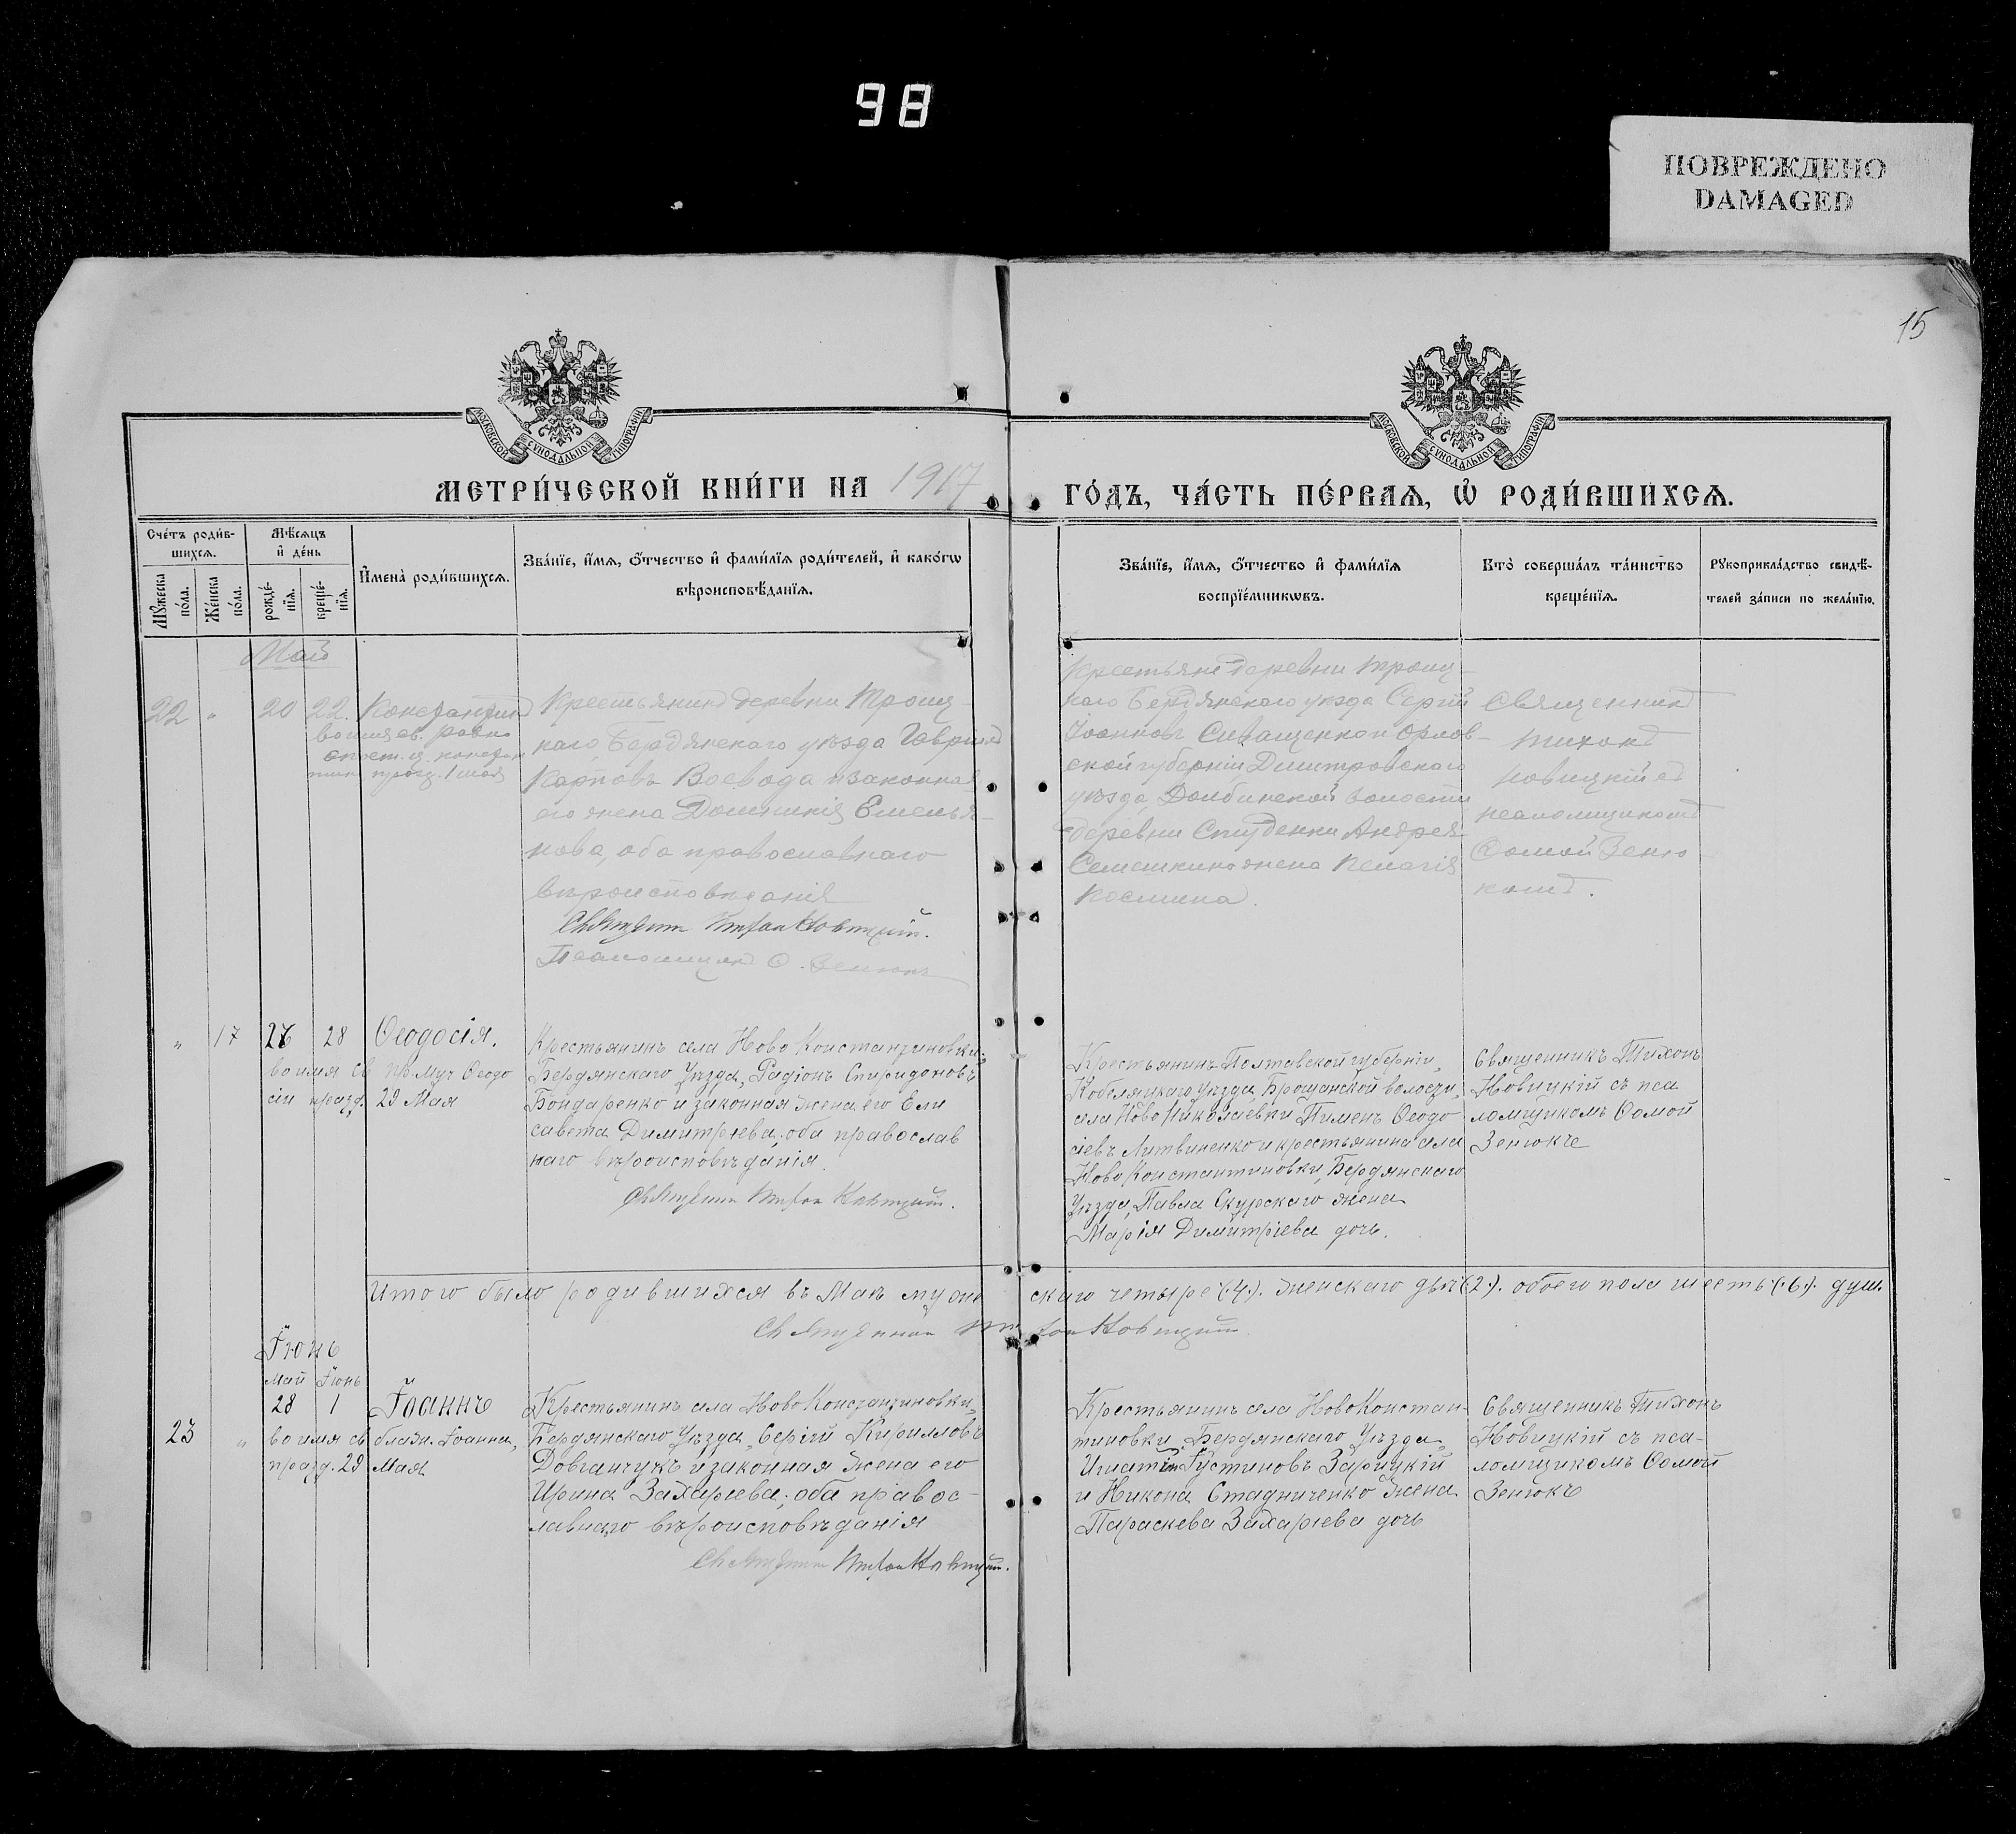 98
ПОВРЕЖДЕНО
DAMAGED
15
МОСКОВСКОЙ СѴНОДАЛЬНОЙ ТИПОГРАФІИ
МОСКОВСКОЙ СѴНОДАЛЬНОЙ ТИПОГРАФІИ
МЕТРИ́ЧЕСКОЙ КНИ́ГИ НА 1917
ГО́ДЪ, ЧА́СТЬ ПЕ́РВАѦ, Ѽ РОДИ́ВШИХСѦ.
Сче́тъ роди́в-
шихсѧ.
Мѣ́сѧцъ
и҆ де́нь
Мꙋ́жеска
по́ла.
Же́нска
по́ла.
рожде́-
нїѧ.
креще́-
нїѧ.
И҆мена̀ роди́вшихсѧ.
Зва́нїе, и҆́мѧ, ѻ҆́тчество и҆ фами́лїѧ роди́телей, и҆ како́гѡ
вѣроисповѣ́данїѧ.
Зва́нїе, и҆́мѧ, ѻ҆́тчество и҆ фами́лїѧ
воспрїе́мникѡвъ.
Кто̀ соверша́лъ та́инство
креще́нїѧ.
Рꙋкоприкла́дство свидѣ́-
телей за́писи по жела́нїю.
Май
22 " 20 22. Константинъ
во имя св. равно
апост. ц. констан
тин празд. 21 мая
Крестьянинъ деревни Троиц-
каго, Бердянскаго уѣзда Гавріилъ
Карповъ Воевода и законная
его жена Домникія Емелья-
нова, оба православнаго
вѣроисповѣданія
Священникъ Тихонъ Новицкій.
Псаломщикъ Ѳ. Зенюкъ
Крестьяне деревни Троиц-
каго Бердянскаго уѣзда Сергій
Іоанновъ Сиващенко и Орлов-
ской губерніи, Димитровскаго
уѣзда, Домбинской волости
деревни Студенки Андрея
Семешкина жена Пелагія
Космина.
Священникъ
Тихонъ
Новицкій съ
псаломщикомъ
Ѳомой Зеню
комъ.
" 17 26 28 Ѳеодосія.
во имя св пр. муч Ѳеодо
сіи празд. 29 Мая
Крестьянинъ села Ново Константиновки,
Бердянскаго Уѣзда, Радіонъ Спиридоновъ
Бондаренко и законная жена его Ели
савета Димитріева; оба православ
наго вѣроисповѣданія.
Священникъ Тихонъ Новицкій.
Крестьянинъ Полтавской губерніи,
Кобелякскаго Уѣзда, Брощанской волости,
села Ново Николаевки Пименъ Ѳеодо
сіевъ Литвиненко и крестьянина села
Ново Константиновки, Бердянскаго
Уѣзда, Павла Скурскаго жена
Марія Димитріева дочь.
Священникъ Тихонъ
Новицкій съ пса
ломщикомъ Ѳомой
Зенюкъ
Итого было родившихся въ Маѣ мужскаго четыре (4). женскаго двѣ (2). обоего пола шесть (6). душ.
Священникъ Тихонъ Новицкій
Іюнь
Май Іюнь
23 " 28 1 Іоаннъ
во имя св блажн. Іоанна,
празд. 29 Мая
Крестьянинъ села Ново Константиновки,
Бердянскаго Уѣзда, Сергій Кирилловъ
Довганчукъ и законная жена его
Ирина Захаріева; оба правос-
лавнаго вѣроисповѣданія
Священникъ Тихонъ Новицкій.
Крестьянинъ села Ново Констан-
тиновки, Бердянскаго Уѣзда,
Игнатій Іустиновъ Зарицкій
и Никона Стадниченко жена
Параскева Захаріева дочь
Священникъ Тихонъ
Новицкій съ пса-
ломщикомъ Ѳомой
Зенюкъ